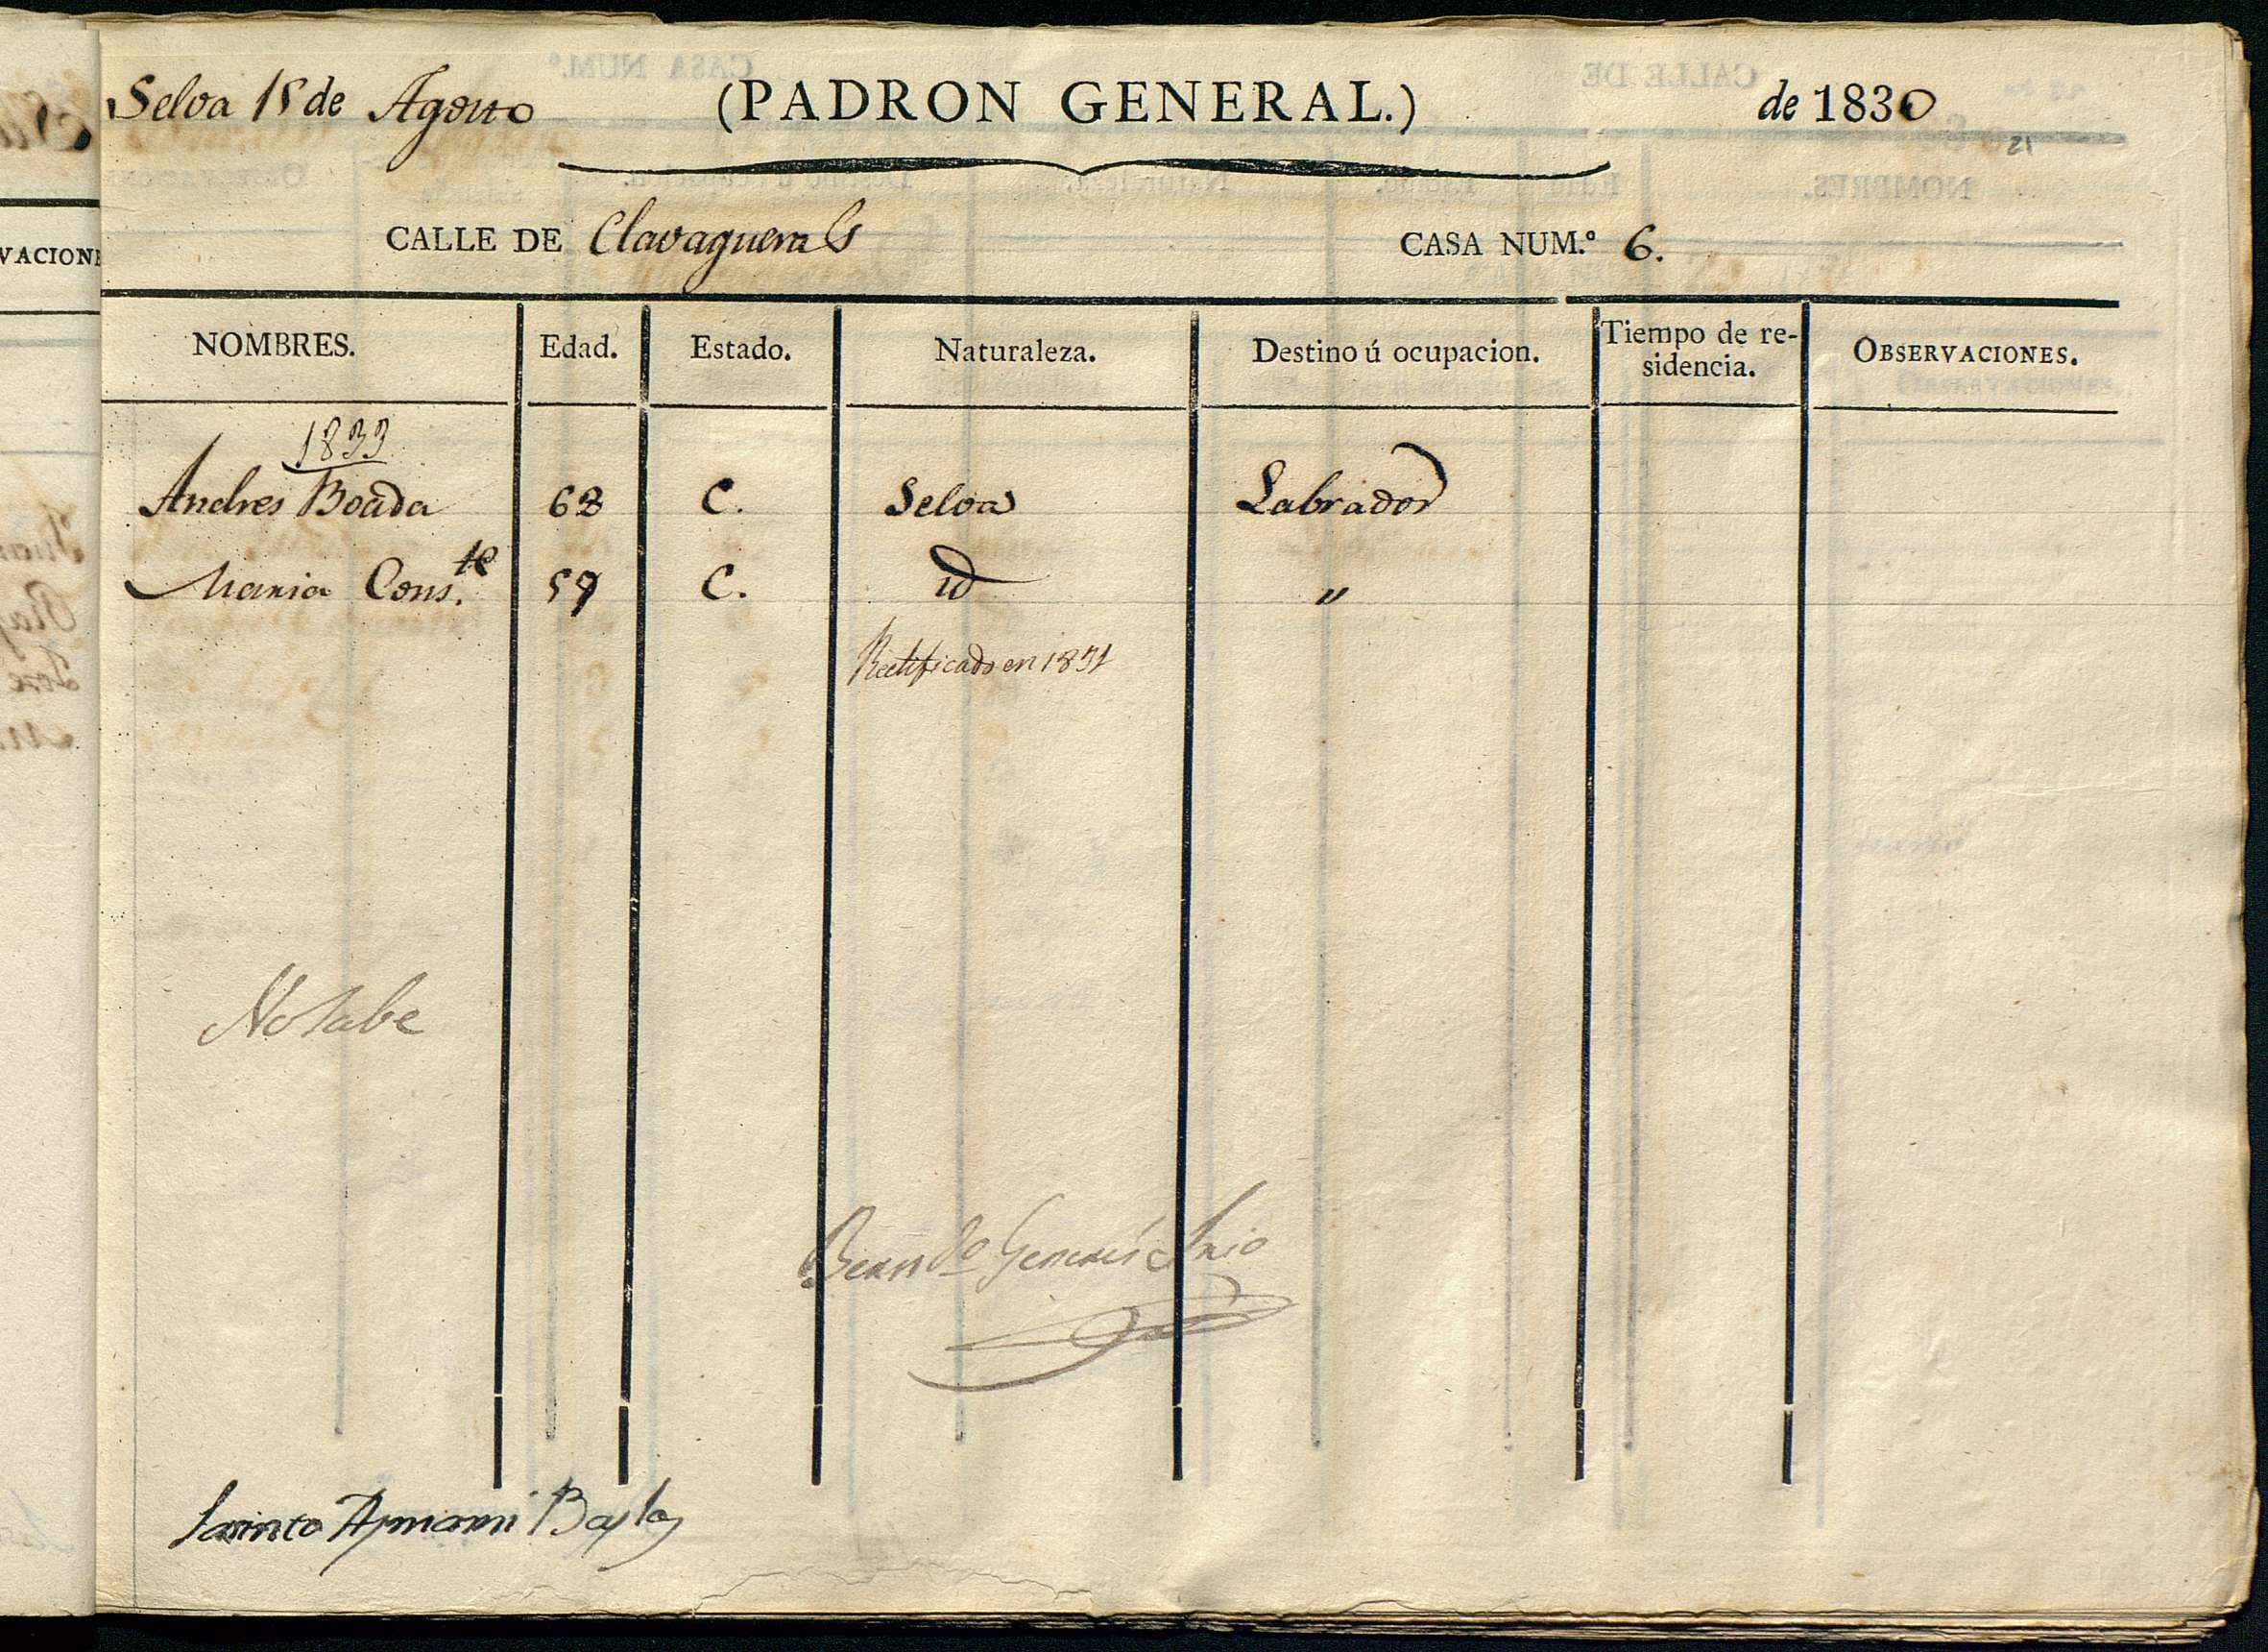 Selva 15 de Agosto (PADRON GENERAL.) de 1830
21
CALLE DE Clavaguera CASA NUM.º 6.
NOMBRES. Edad. Estado. Naturaleza. Destino ú ocupacion. Tiempo de re-
sidencia. OBSERVACIONES.
1833
Andres Boada 68 C. Selva Labrador
Maria Cons.te 59 C. id "
Rectificado en 1831
No sabe
Bern.do Generés Srio
Jasinto Aymami Bayle